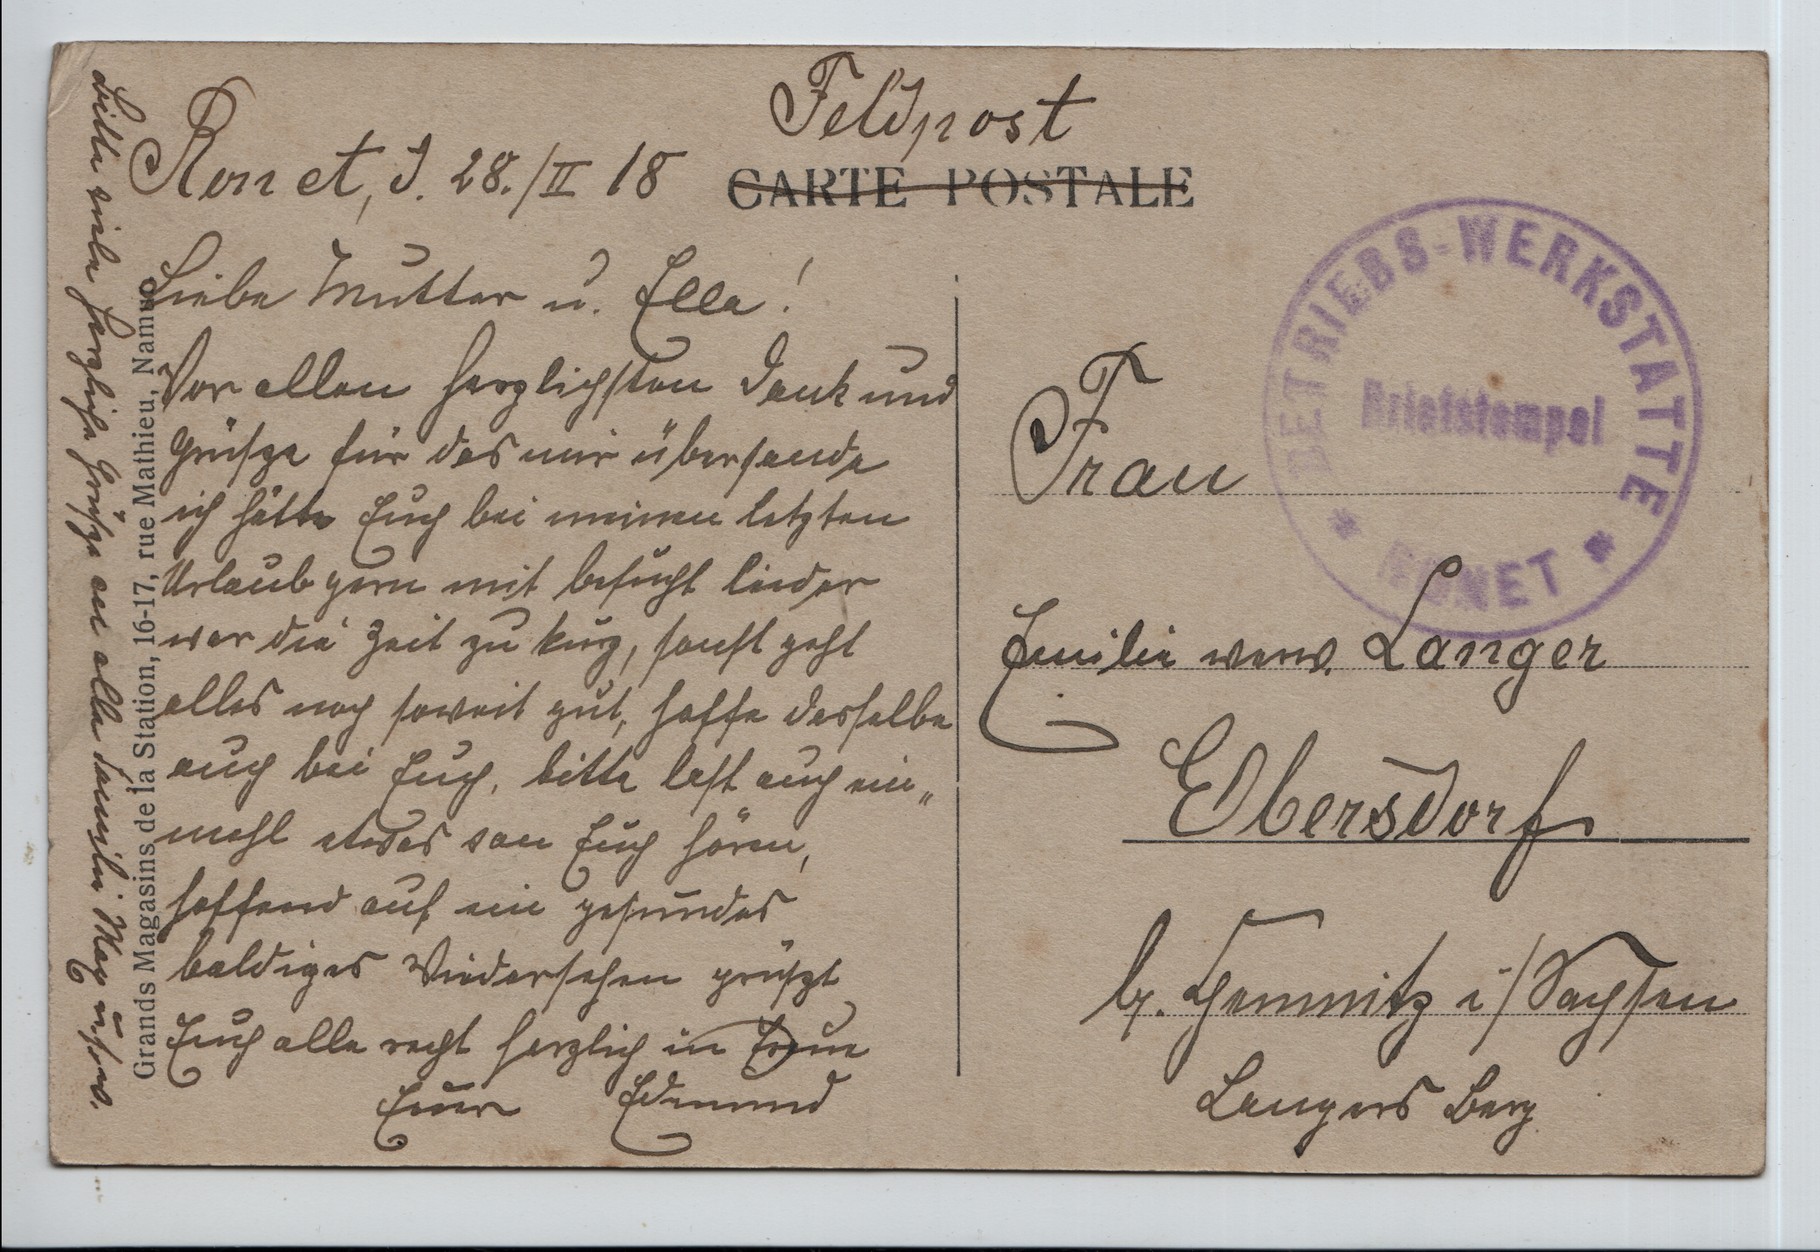 Feldpost
CARTE POSTALE
Ronet, d. 28./II 18
Liebe Mutter u. Ella!
Vor allen herzlichsten Dank und
Grüsze für das mir übersande
ich hätte Euch bei meinen letzten
Urlaub gern mit besucht lieder
war die Zeit zu kurz, sonst geht
alles noch soweit gut, hoffe dasselbe
auch bei Euch, bitte last auch ein„
mahl etwas von Euch hören,
hoffend auf ein gesundes
baldiges Wiedersehen grüszt
Euch alle recht herzlich in Treue
Euer Edmund
bitte viele herzliche Grüsze an alle Familie May u.s.w.
Grands Magasins de la Station, 16-17, rue Mathieu, Namur
BETRIEBS-WERKSTATTE
Briefstempel
* RONET *
Frau
Emilie verw. Langer
Ebersdorf
b. Chemnitz i/Sachsen
Langers Berg